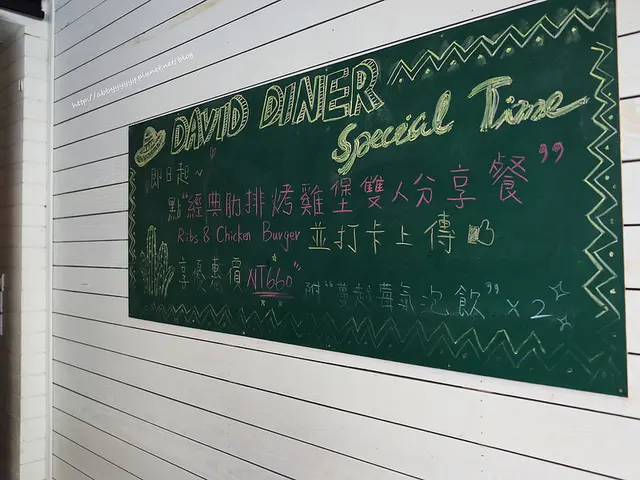 DAVID DINER
Special Time
即日起~
點"經典肋排烤雞堡雙人分享餐"
Ribs & Chicken Burger 並打卡上傳
享優惠價 NT660
附 薑氣泡飲" x 2